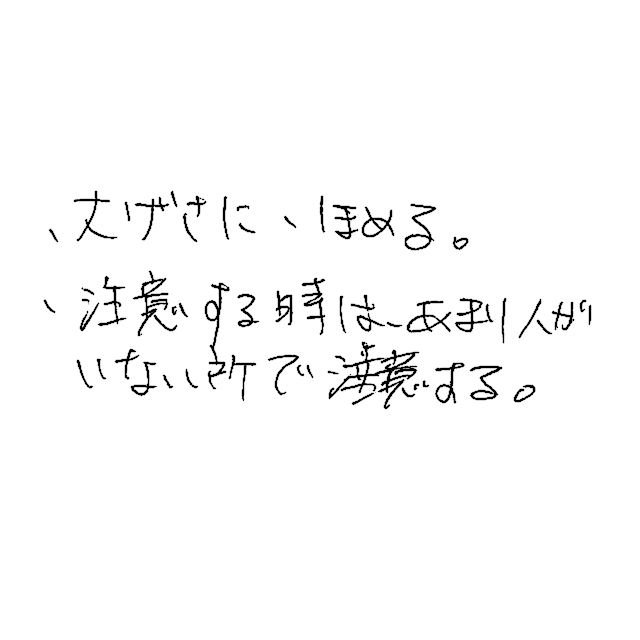 、大げさに、ほめる。
、注意する時は、あまり人が
いない所で注意する。